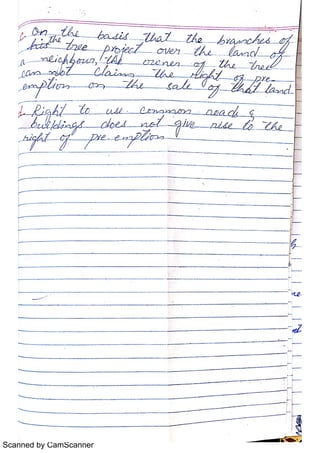 c. On the basis that the branches of
his the tree project over the land of
a neighbour, the owner of the tree
can not claim the right of pre-
emption on the sale of that land.
d. Right to use common roads &
buildings does not give rise to the
right of pre-emption
Scanned by CamScanner